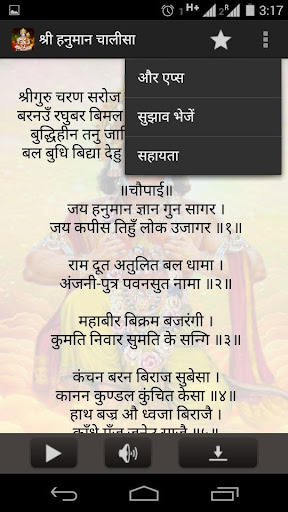 1 H+ 3:17
श्री हनुमान चालीसा
और एप्स
सुझाव भेजें
सहायता
श्रीगुरु चरण सरोज
बरनउँ रघुबर बिमल
बुद्धिहीन तनु
बल बुधि बिद्या देहु
॥चौपाई॥
जय हनुमान ज्ञान गुन सागर ।
जय कपीस तिहुँ लोक उजागर ॥१॥
राम दूत अतुलित बल धामा ।
अंजनी-पुत्र पवनसुत नामा ॥२॥
महाबीर बिक्रम बजरंगी ।
कुमति निवार सुमति के सन्गि ॥३॥
कंचन बरन बिराज सुबेसा ।
कानन कुण्डल कुंचित केसा ॥४॥
हाथ बज्र औ ध्वजा बिराजै ।
काँधे मूँज जनेउ साजै ॥५॥